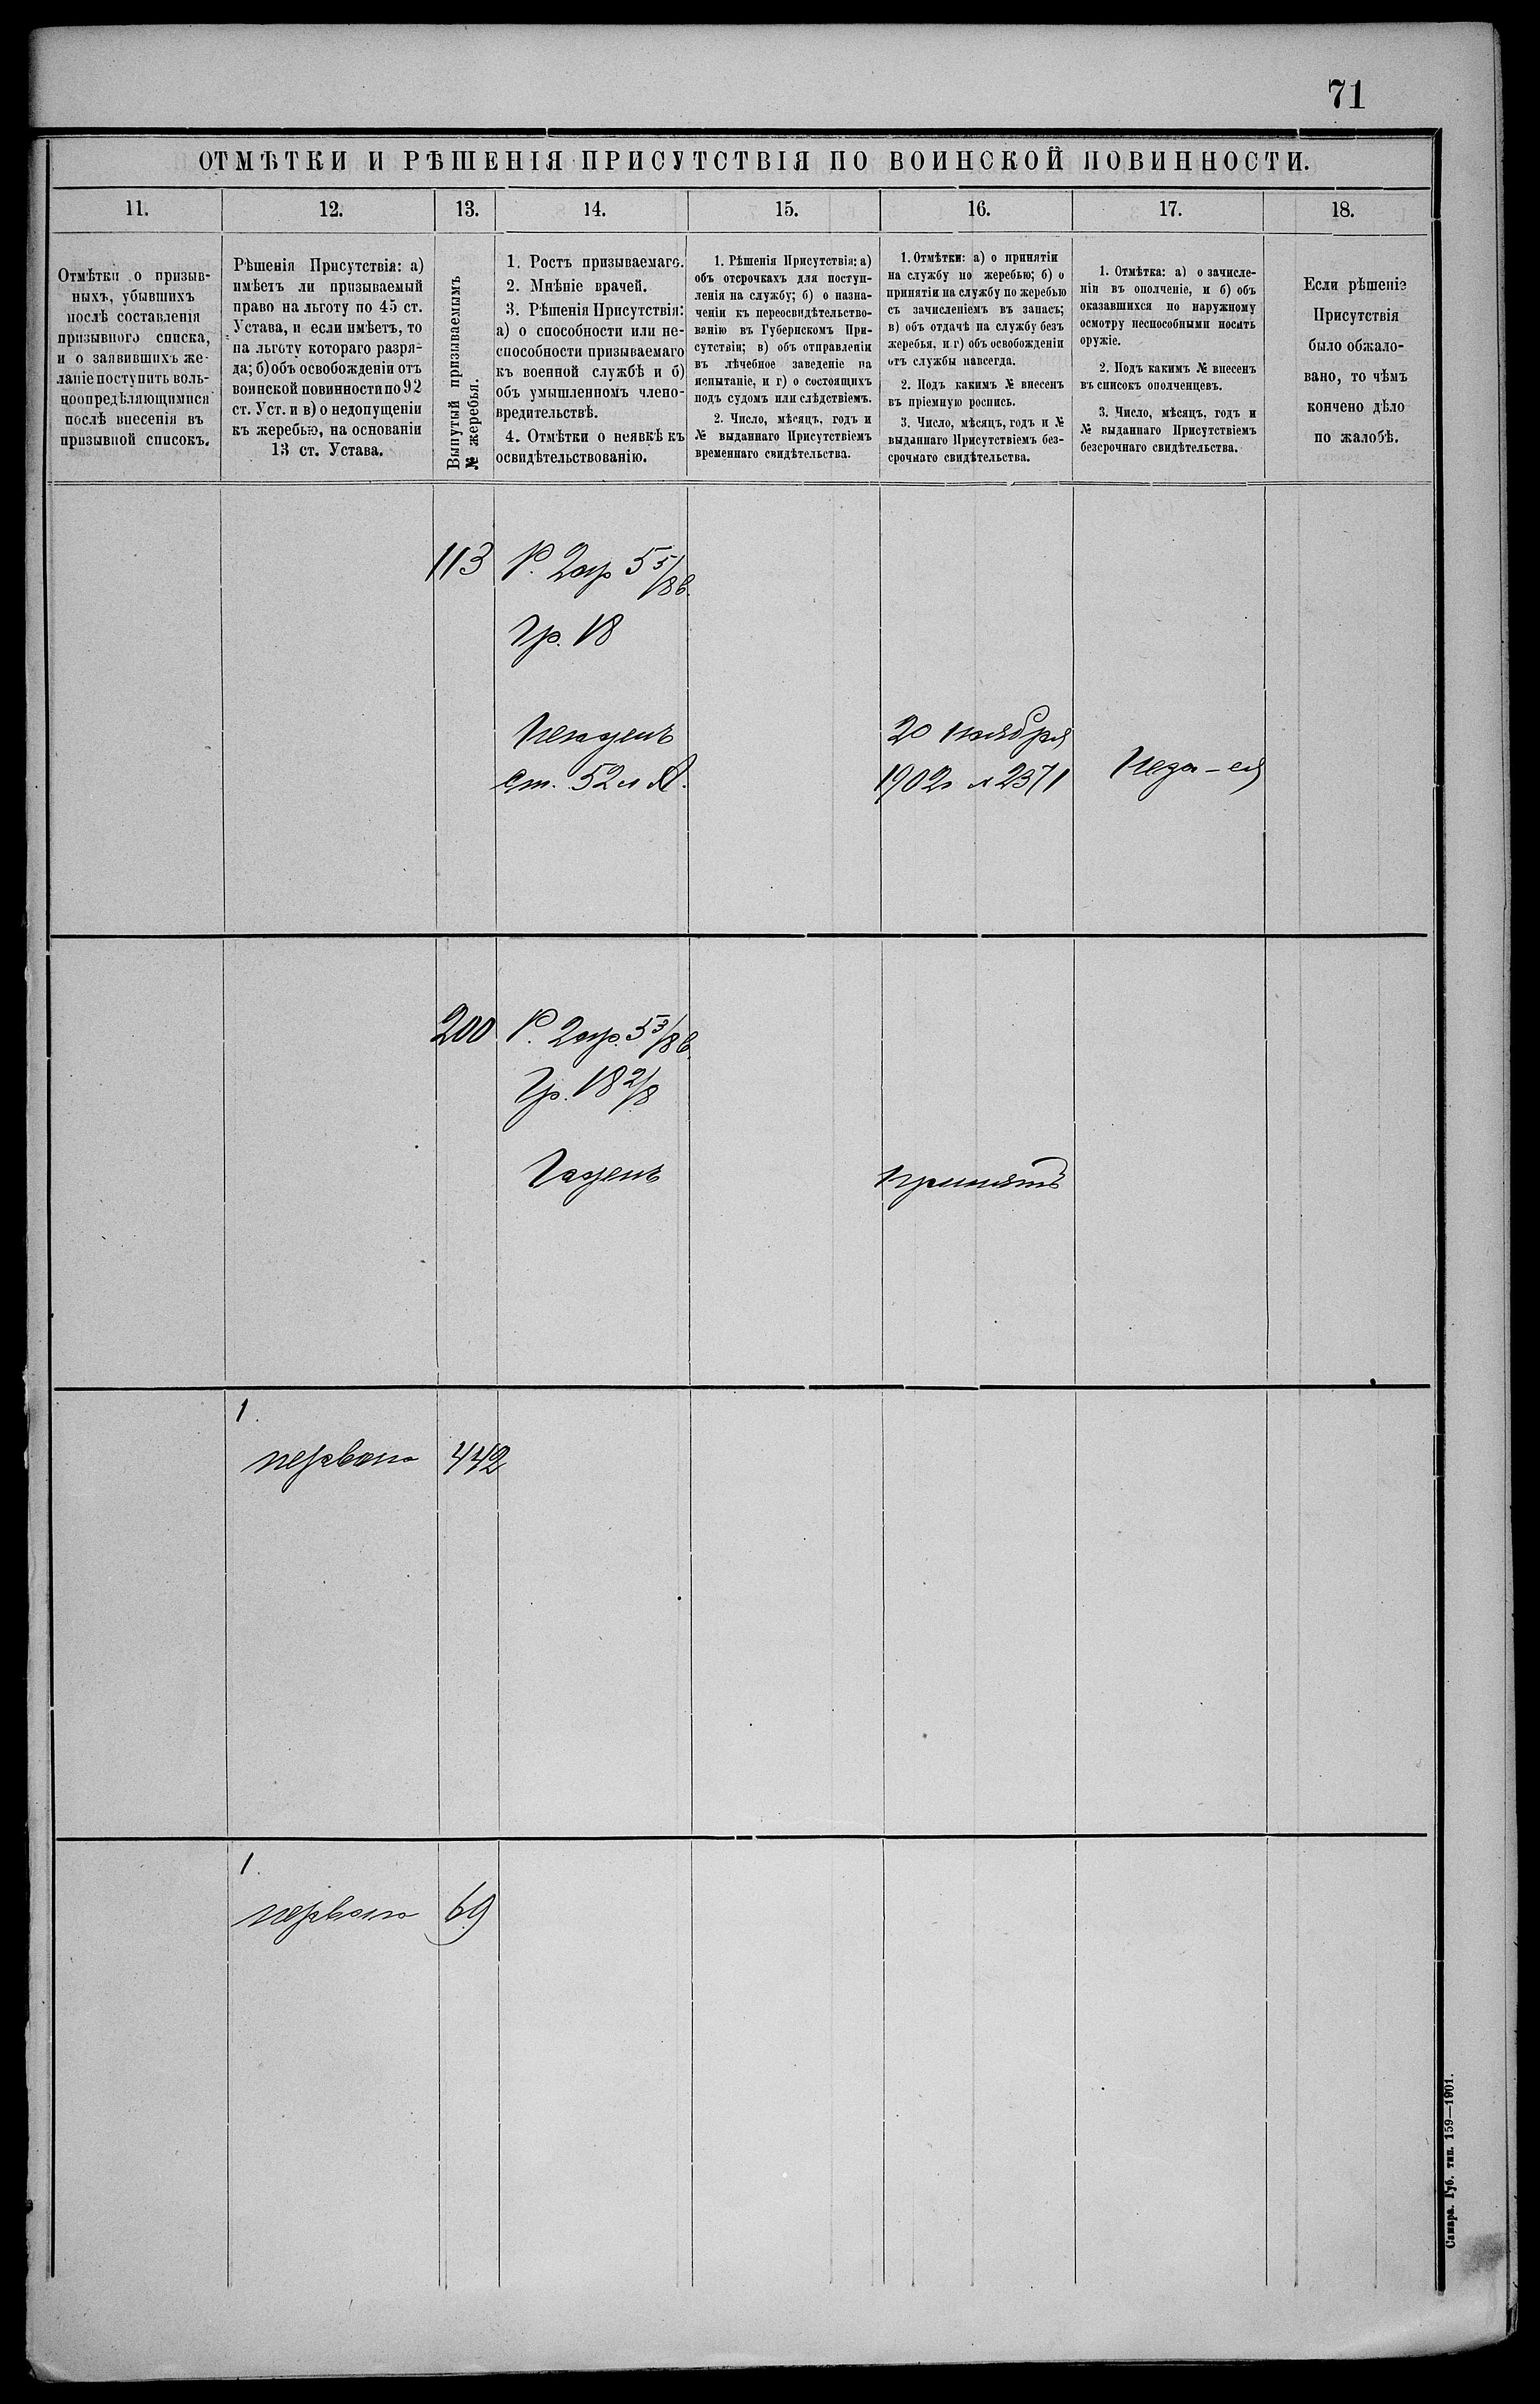 71
ОТМѢТКИ И РѢШЕНІЯ ПРИСУТСТВІЯ ПО ВОИНСКОЙ ПОВИННОСТИ.
11.
12.
13.
14.
15.
16.
17.
18.
Отмѣтки о призыв-
ныхъ, убывшихъ
послѣ составленія
призывного списка,
и о заявившихъ же-
ланіе поступить воль-
ноопредѣляющимися
послѣ внесенія въ
призывной списокъ.
Рѣшенія Присутствія: а)
имѣетъ ли призываемый
право на льготу по 45 ст.
Устава, и если имѣетъ, то
на льготу котораго разря-
да; б) объ освобожденіи отъ
воинской повинности по 92
ст. Уст. и в) о недопущеніи
къ жеребью, на основаніи
13 ст. Устава.
Вынутый призываемымъ
№ жеребья.
1. Ростъ призываемаго.
2. Мнѣніе врачей.
3. Рѣшенія Присутствія:
а) о способности или не-
способности призываемаго
къ военной службѣ и б)
объ умышленномъ члено-
вредительствѣ.
4. Отмѣтки о неявкѣ къ
освидѣтельствованію.
1. Рѣшенія Присутствія: а)
объ отсрочкахъ для поступ-
ленія на службу; б) о назна-
ченіи къ переосвидѣтельство-
ванію въ Губернскомъ При-
сутствіи; в) объ отправленіи
въ лѣчебное заведеніе на
испытаніе, и г) о состоящихъ
подъ судомъ или слѣдствіемъ.
2. Число, мѣсяцъ, годъ и
№ выданнаго Присутствіемъ
временнаго свидѣтельства.
1. Отмѣтки: а) о принятіи
на службу по жеребью; б) о
принятіи на службу по жеребью
съ зачисленіемъ въ запасъ;
в) объ отдачѣ на службу безъ
жеребья, и г) объ освобожденіи
отъ службы навсегда.
2. Подъ какимъ № внесенъ
въ пріемную роспись.
3. Число, мѣсяцъ, годъ и №
выданнаго Присутствіемъ без-
срочнаго свидѣтельства.
1. Отмѣтка: а) о зачисле-
ніи въ ополченіе, и б) объ
оказавшихся по наружному
осмотру неспособными носить
оружіе.
2. Подъ какимъ № внесенъ
въ списокъ ополченцевъ.
3. Число, мѣсяцъ, годъ и
№ выданнаго Присутствіемъ
безсрочнаго свидѣтельства.
Если рѣшеніе
Присутствія
было обжало-
вано, то чѣмъ
кончено дѣло
по жалобѣ.
113
Р. 2 ар 5 5/8 в.
Гр. 18
Негоденъ
ст. 52 л А.
20 Ноября
1902 г № 2371
200
Р. 2 ар. 5 3/8 в.
Гр. 18 2/8
Годенъ
Принятъ
1.
перваго
442
1.
перваго
69
Самара. Губ. тип. 159—1901.